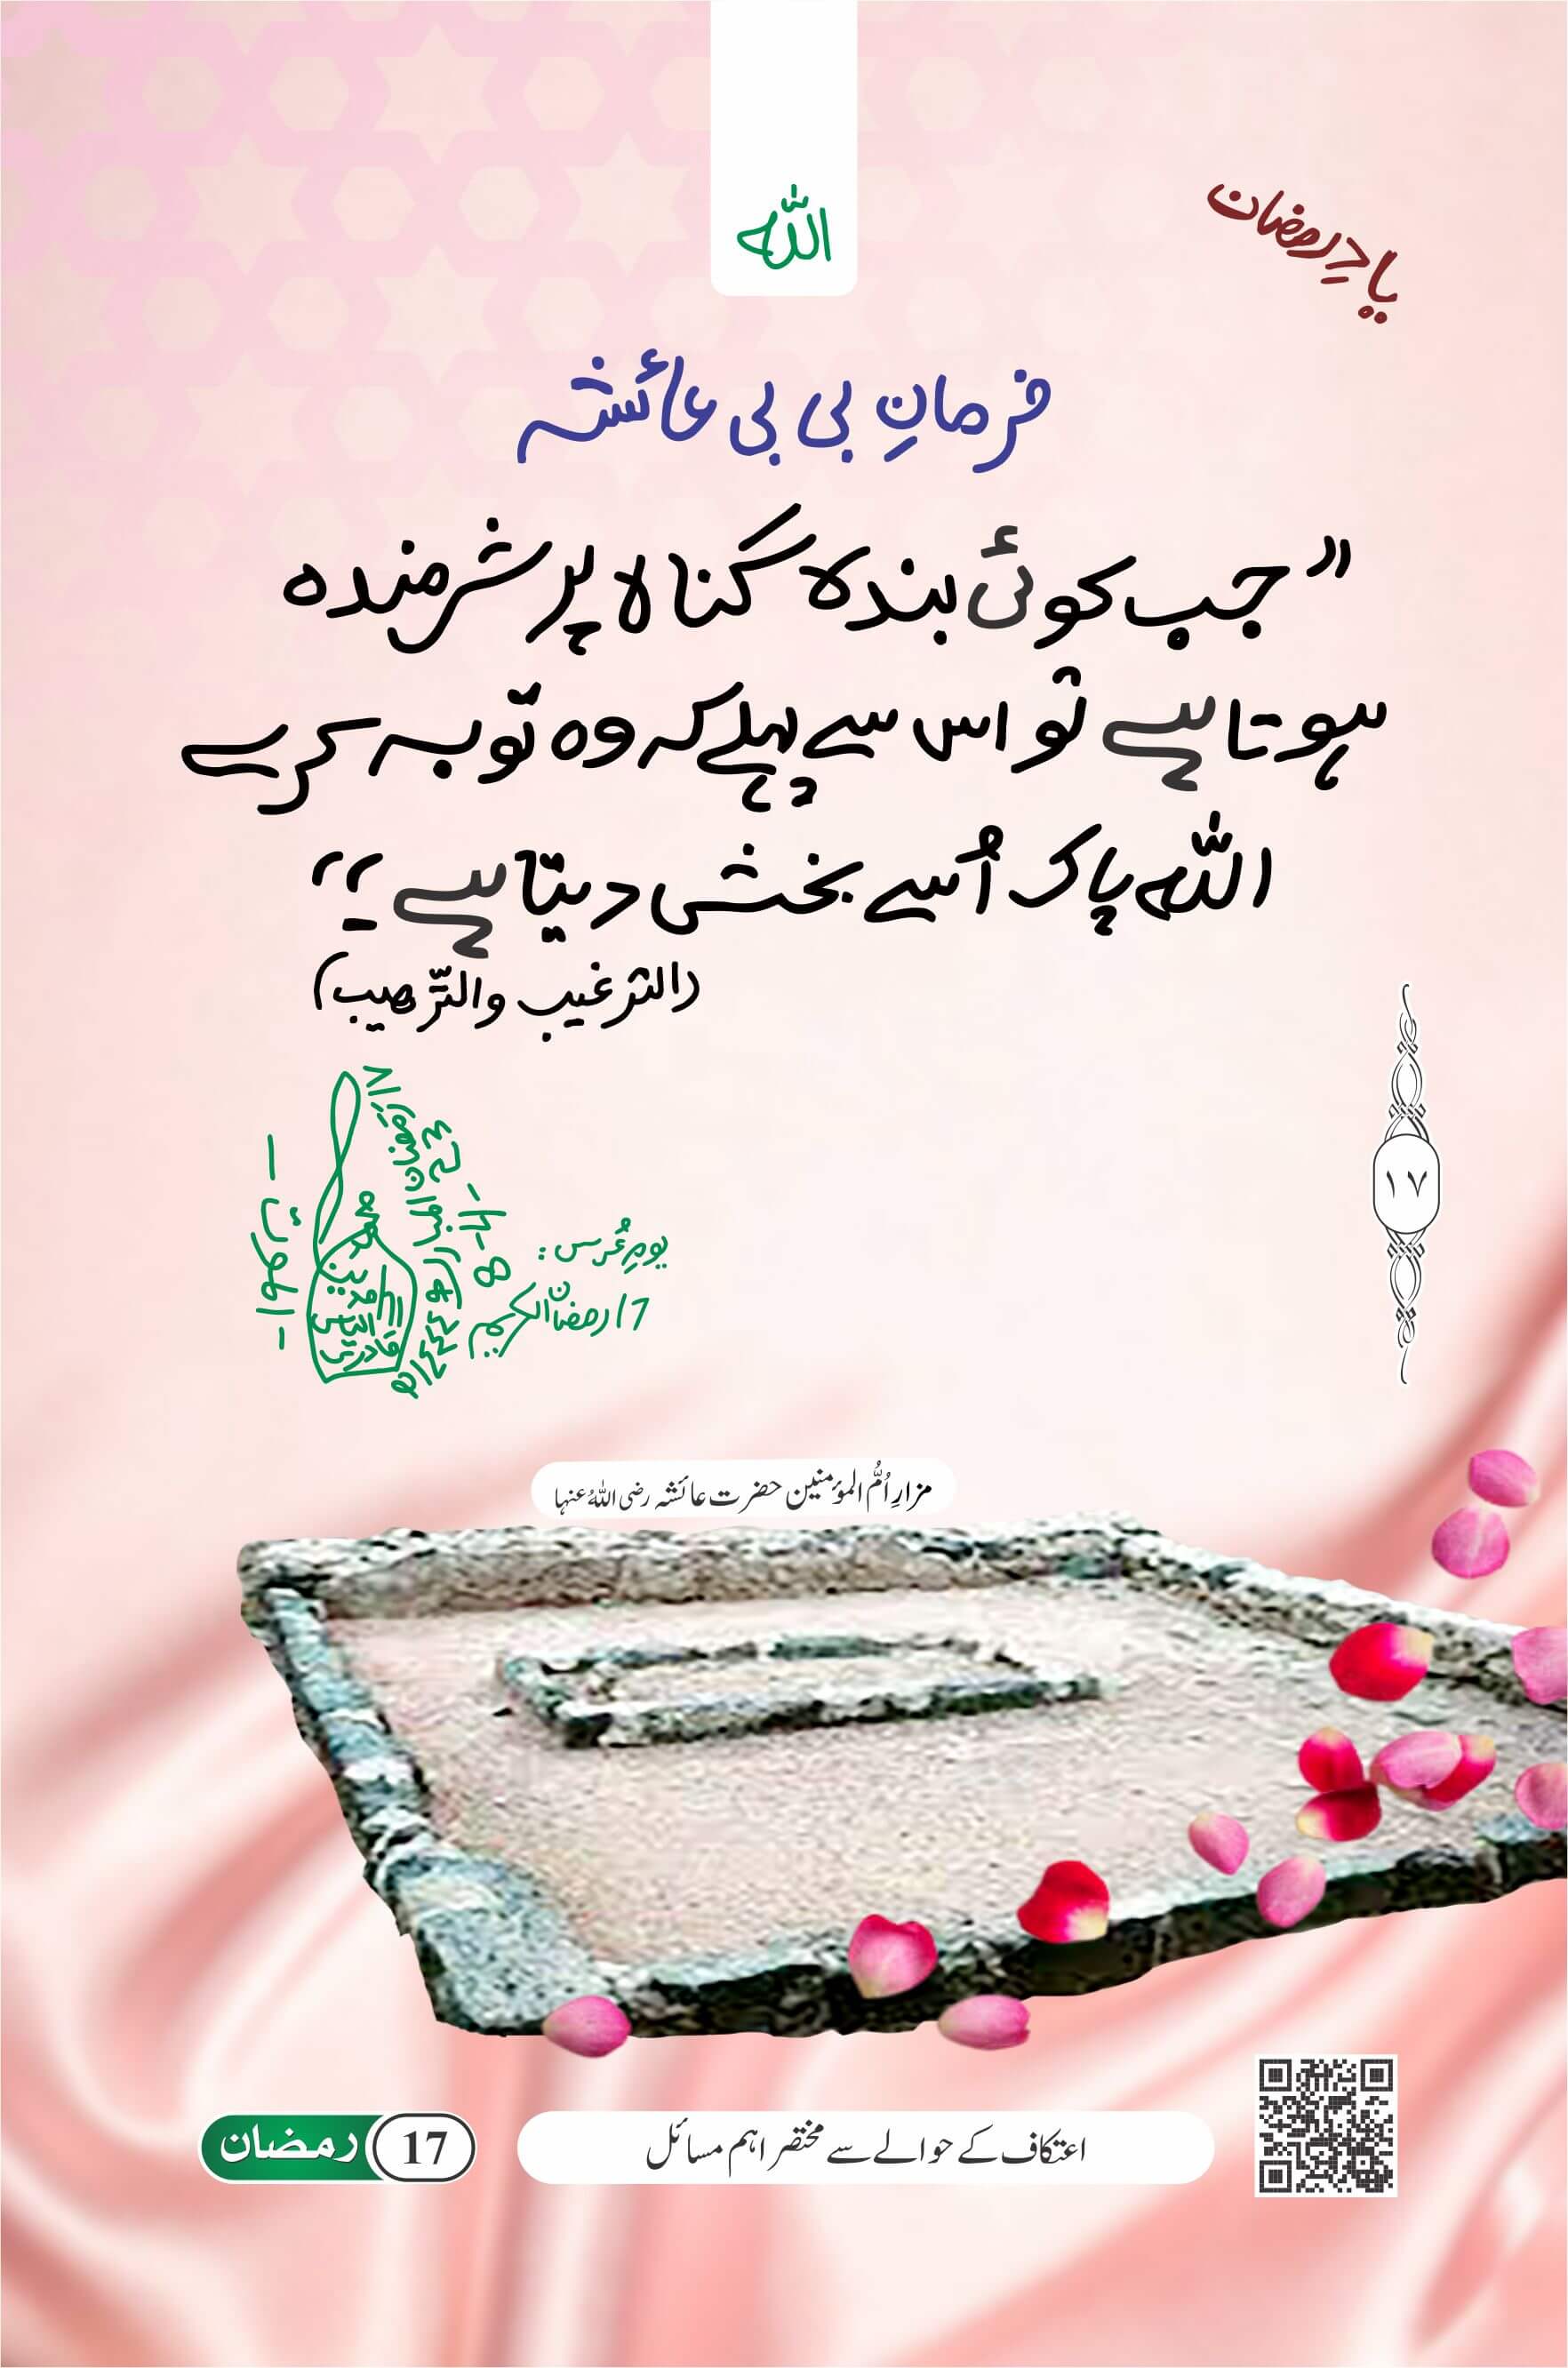 اللہ
یادِ رمضان
فرمانِ بی بی عائشہ
"جب کوئی بندہ گناہ پر شرمندہ
ہوتا ہے تو اس سے پہلے کہ وہ توبہ کرے
اللہ پاک اُسے بخش دیتا ہے۔"
(الترغیب والترھیب)
۱۷
یومِ عُرس:
17 رمضان الکریم
مزارِ اُمُّ المؤمنین حضرت عائشہ رضی اللہُ عنہا
اعتکاف کے حوالے سے مختصر اہم مسائل
17 رمضان